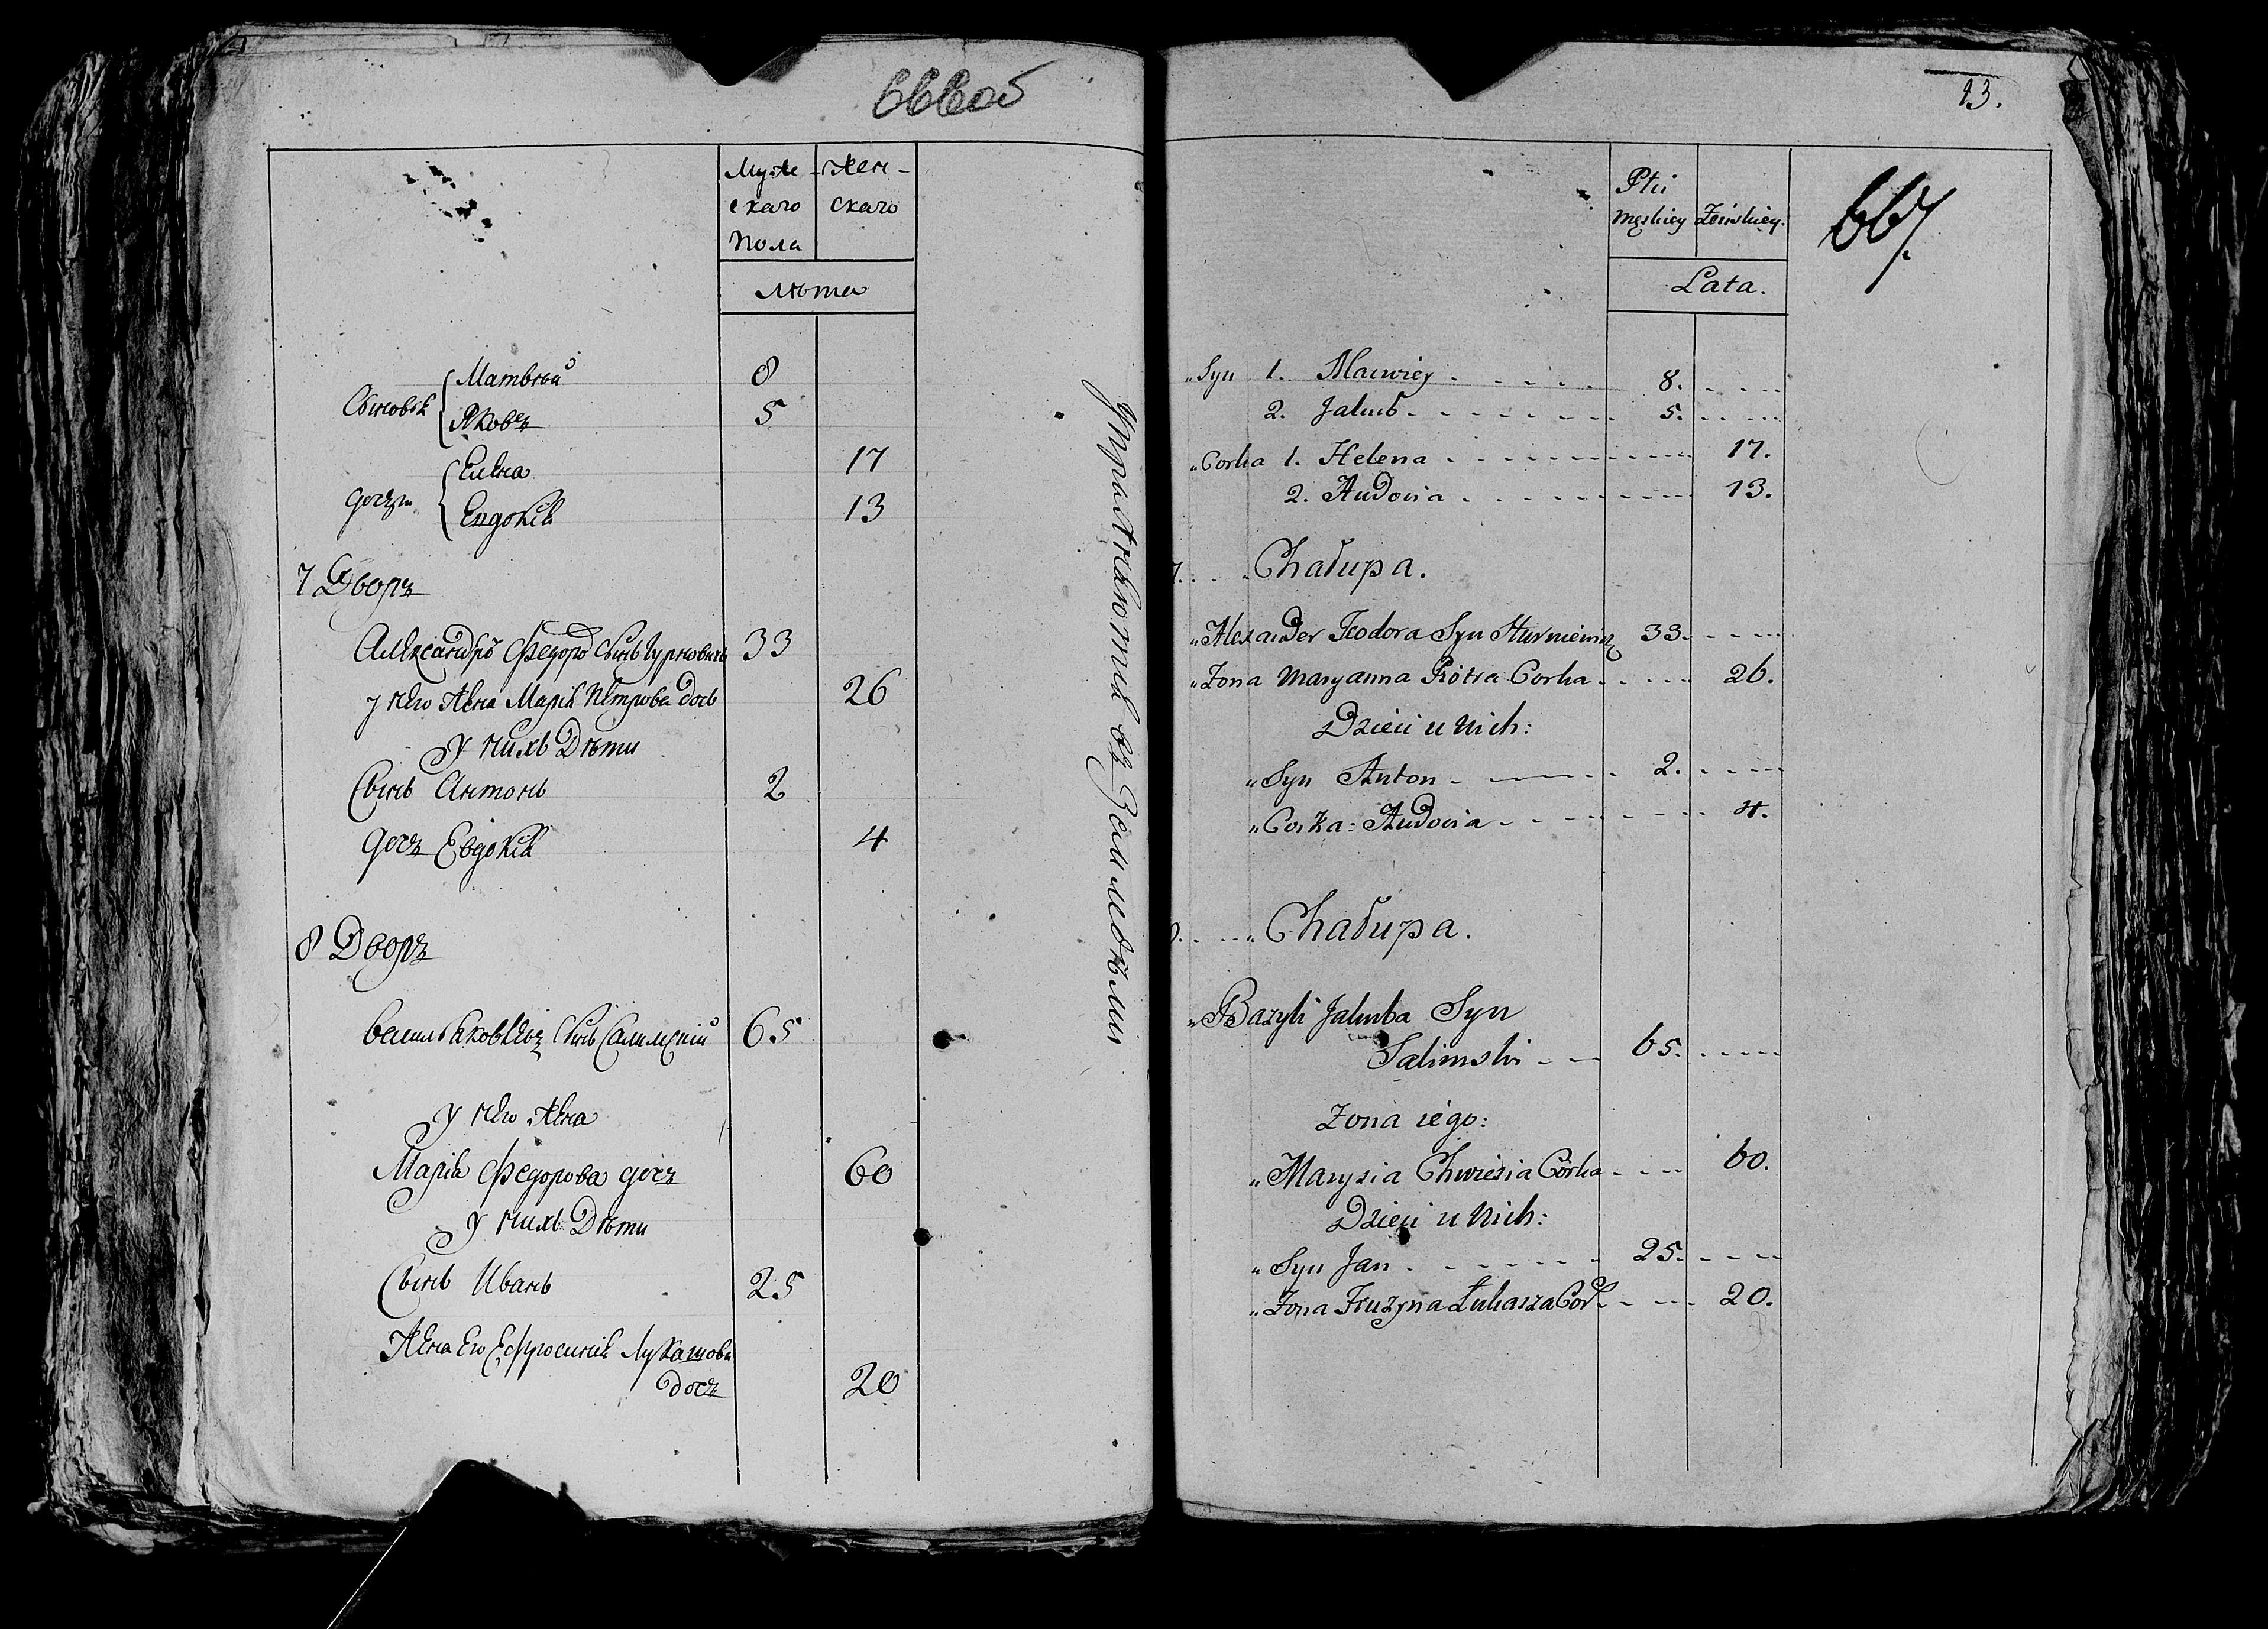 666 об
Муже-
скаго
пола
Жен-
скаго
Лѣта
Сыновья
Матвѣй 8
Яковъ 5
дочъи
Елена 17
Евдокія 13
7 Дворъ
Александръ Федоро Сынъ 33
у него Жена Марія Петрова дочь 26
У нихъ Дѣти
Сынъ Антонъ 2
дочъ Евдокія 4
8 Дворъ
Василь Яковлевъ Сынъ Салимскій 65
у него Жена
Марія Федорова дочъ 60
у нихъ Дѣти
Сынъ Иванъ 25
Жена Его Ефросинія Лукашова
дочъ 20
Упражняются въ Земледѣліи
13.
667.
Płci
męskiey Żeńskiey.
Lata.
„Syn 1. Maciviey 8.
2. Jakub 5.
„Corka 1. Helena 17.
2. Audocia 13.
7. Chałupa.
„Alexander Teodora Syn 33.
„Zona Maryanna Piotra Corka 26.
Dzieci u Nich:
„Syn Anton 2.
„Corka: Audocia 4.
8. „Chałupa.
„Bazyli Jakuba Syn
Salimski 65.
Zona iego:
„Marysia Chwiesia Córka 60.
Dzieci u Nich:
„Syn Jan 25.
„Zona Fruzyna Łukasza Cor. 20.